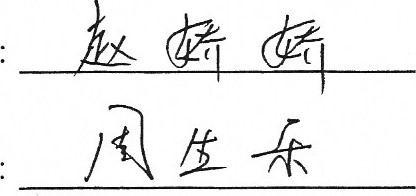 : 赵娇娇
: 周生乐